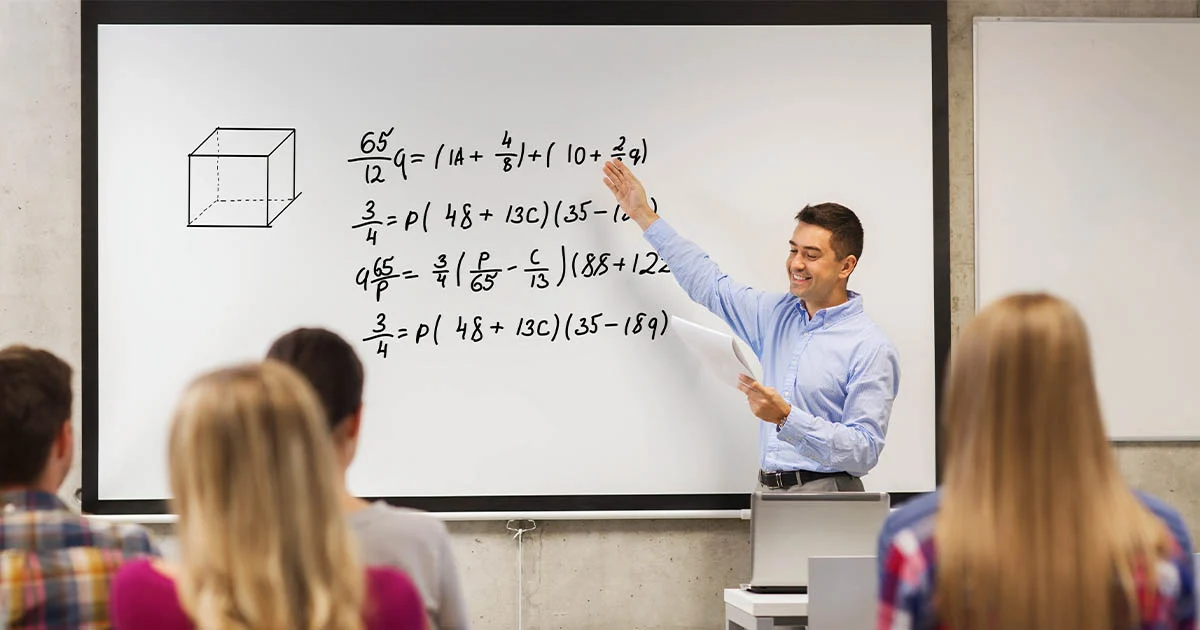 65/12 q = (1A + 4/8) + ( 10 + 2/ q)
3/4 = P( 48 + 13C)(35 - 1
q 65/P = 3/4 (P/65 - C/13)(88 + 122
3/4 = P( 48 + 13C)(35 - 18q)